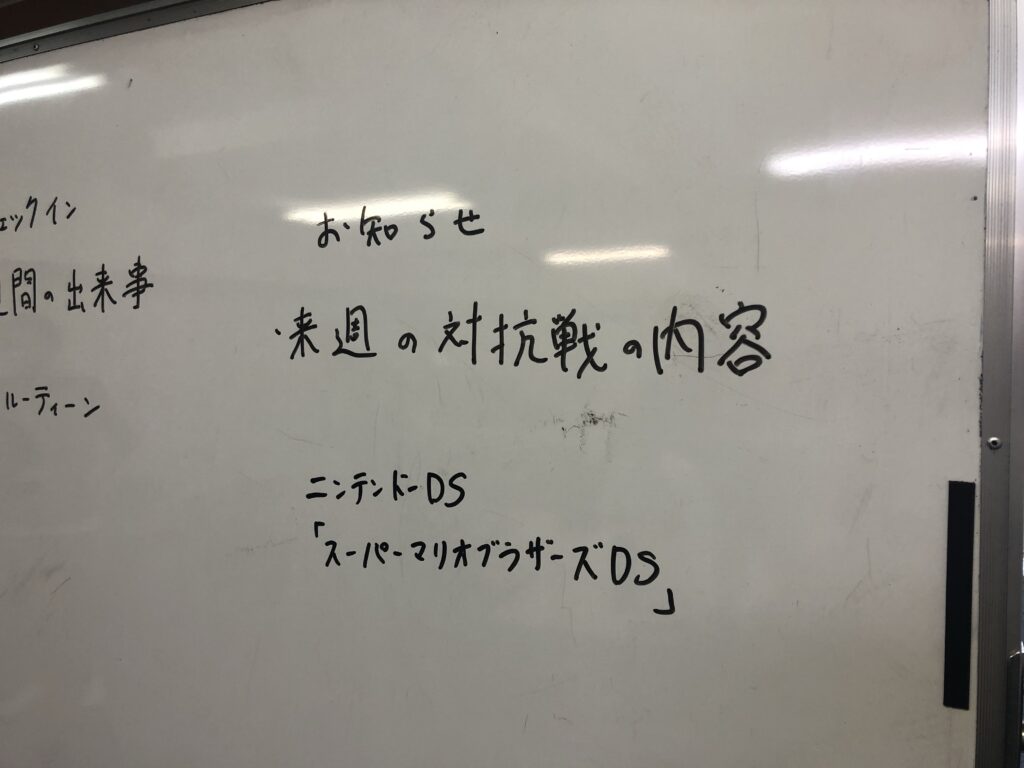 ェックイン
週間の出来事
ルーティーン
お知らせ
・来週の対抗戦の内容
ニンテンドーDS
「スーパーマリオブラザーズDS」